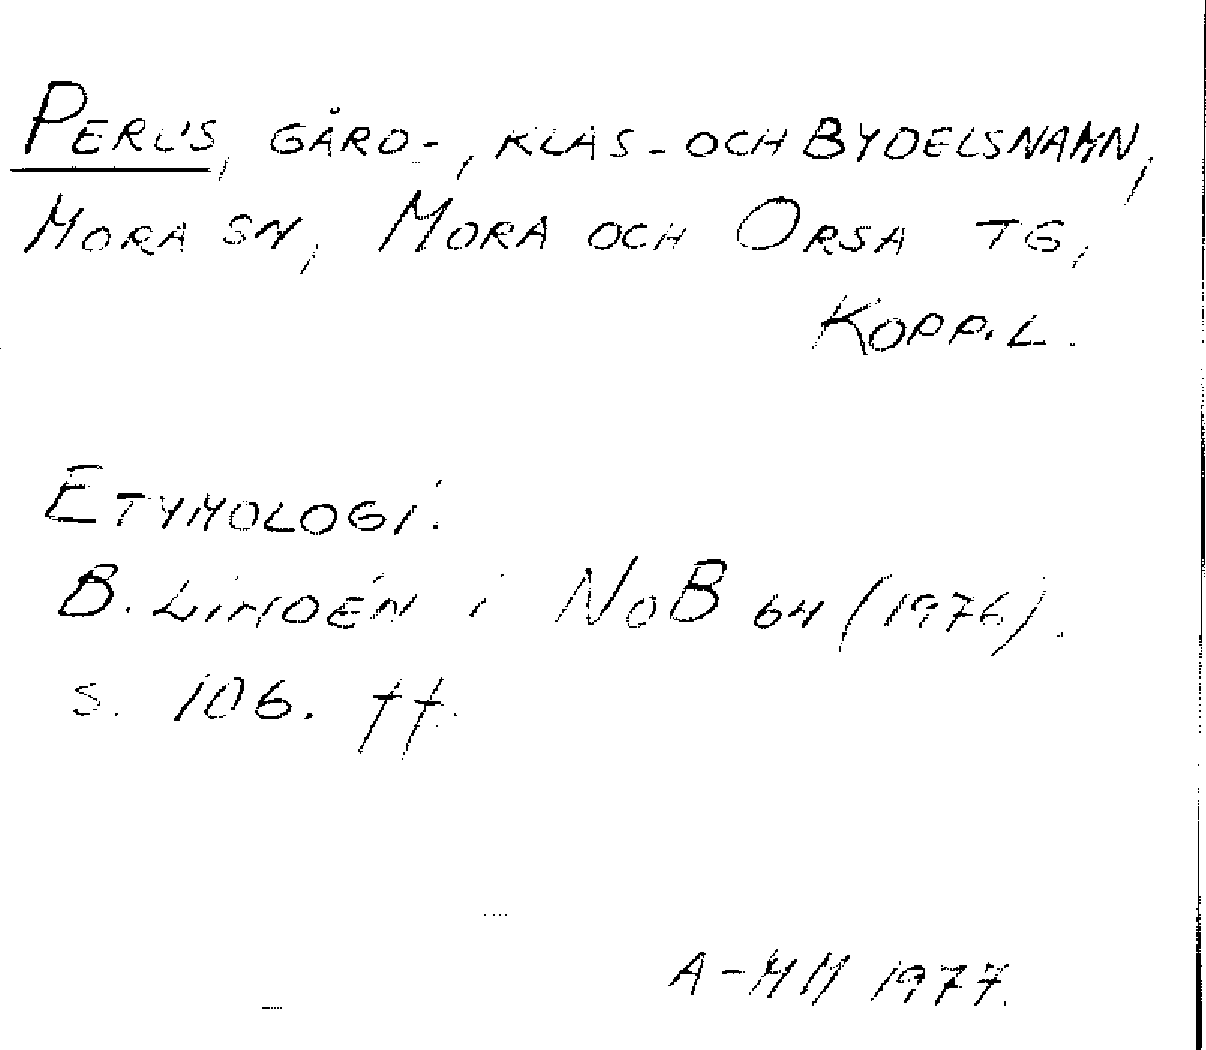 PERUS, GÅRD-, KLAS- OCH BYDELSNAMN,
MORA SN, MORA OCH ORSA TG,
KOPP.L.
ETYMOLOGI:
B. LINDÉN i NoB 64 (1976).
S. 106. ff.
A-MM 1977.